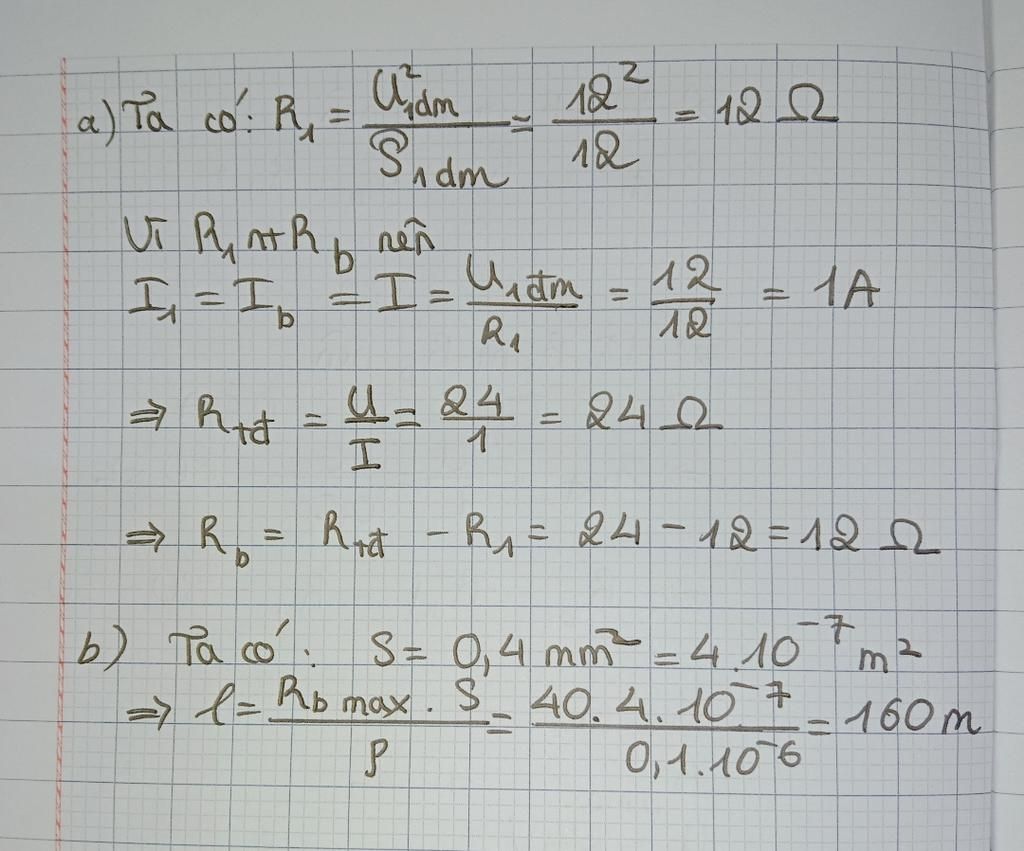 a) Ta có: R₁ = U²₁đm / P₁đm = 12² / 12 = 12 Ω
Vì R₁ nt R_b nên
I₁ = I_b = I = U₁đm / R₁ = 12 / 12 = 1A
⇒ R_tđ = U / I = 24 / 1 = 24 Ω
⇒ R_b = R_tđ - R₁ = 24 - 12 = 12 Ω
b) Ta có: S = 0,4 mm² = 4.10⁻⁷ m²
⇒ l = R_b max . S / ρ = 40. 4. 10⁻⁷ / 0,1.10⁻⁶ = 160 m